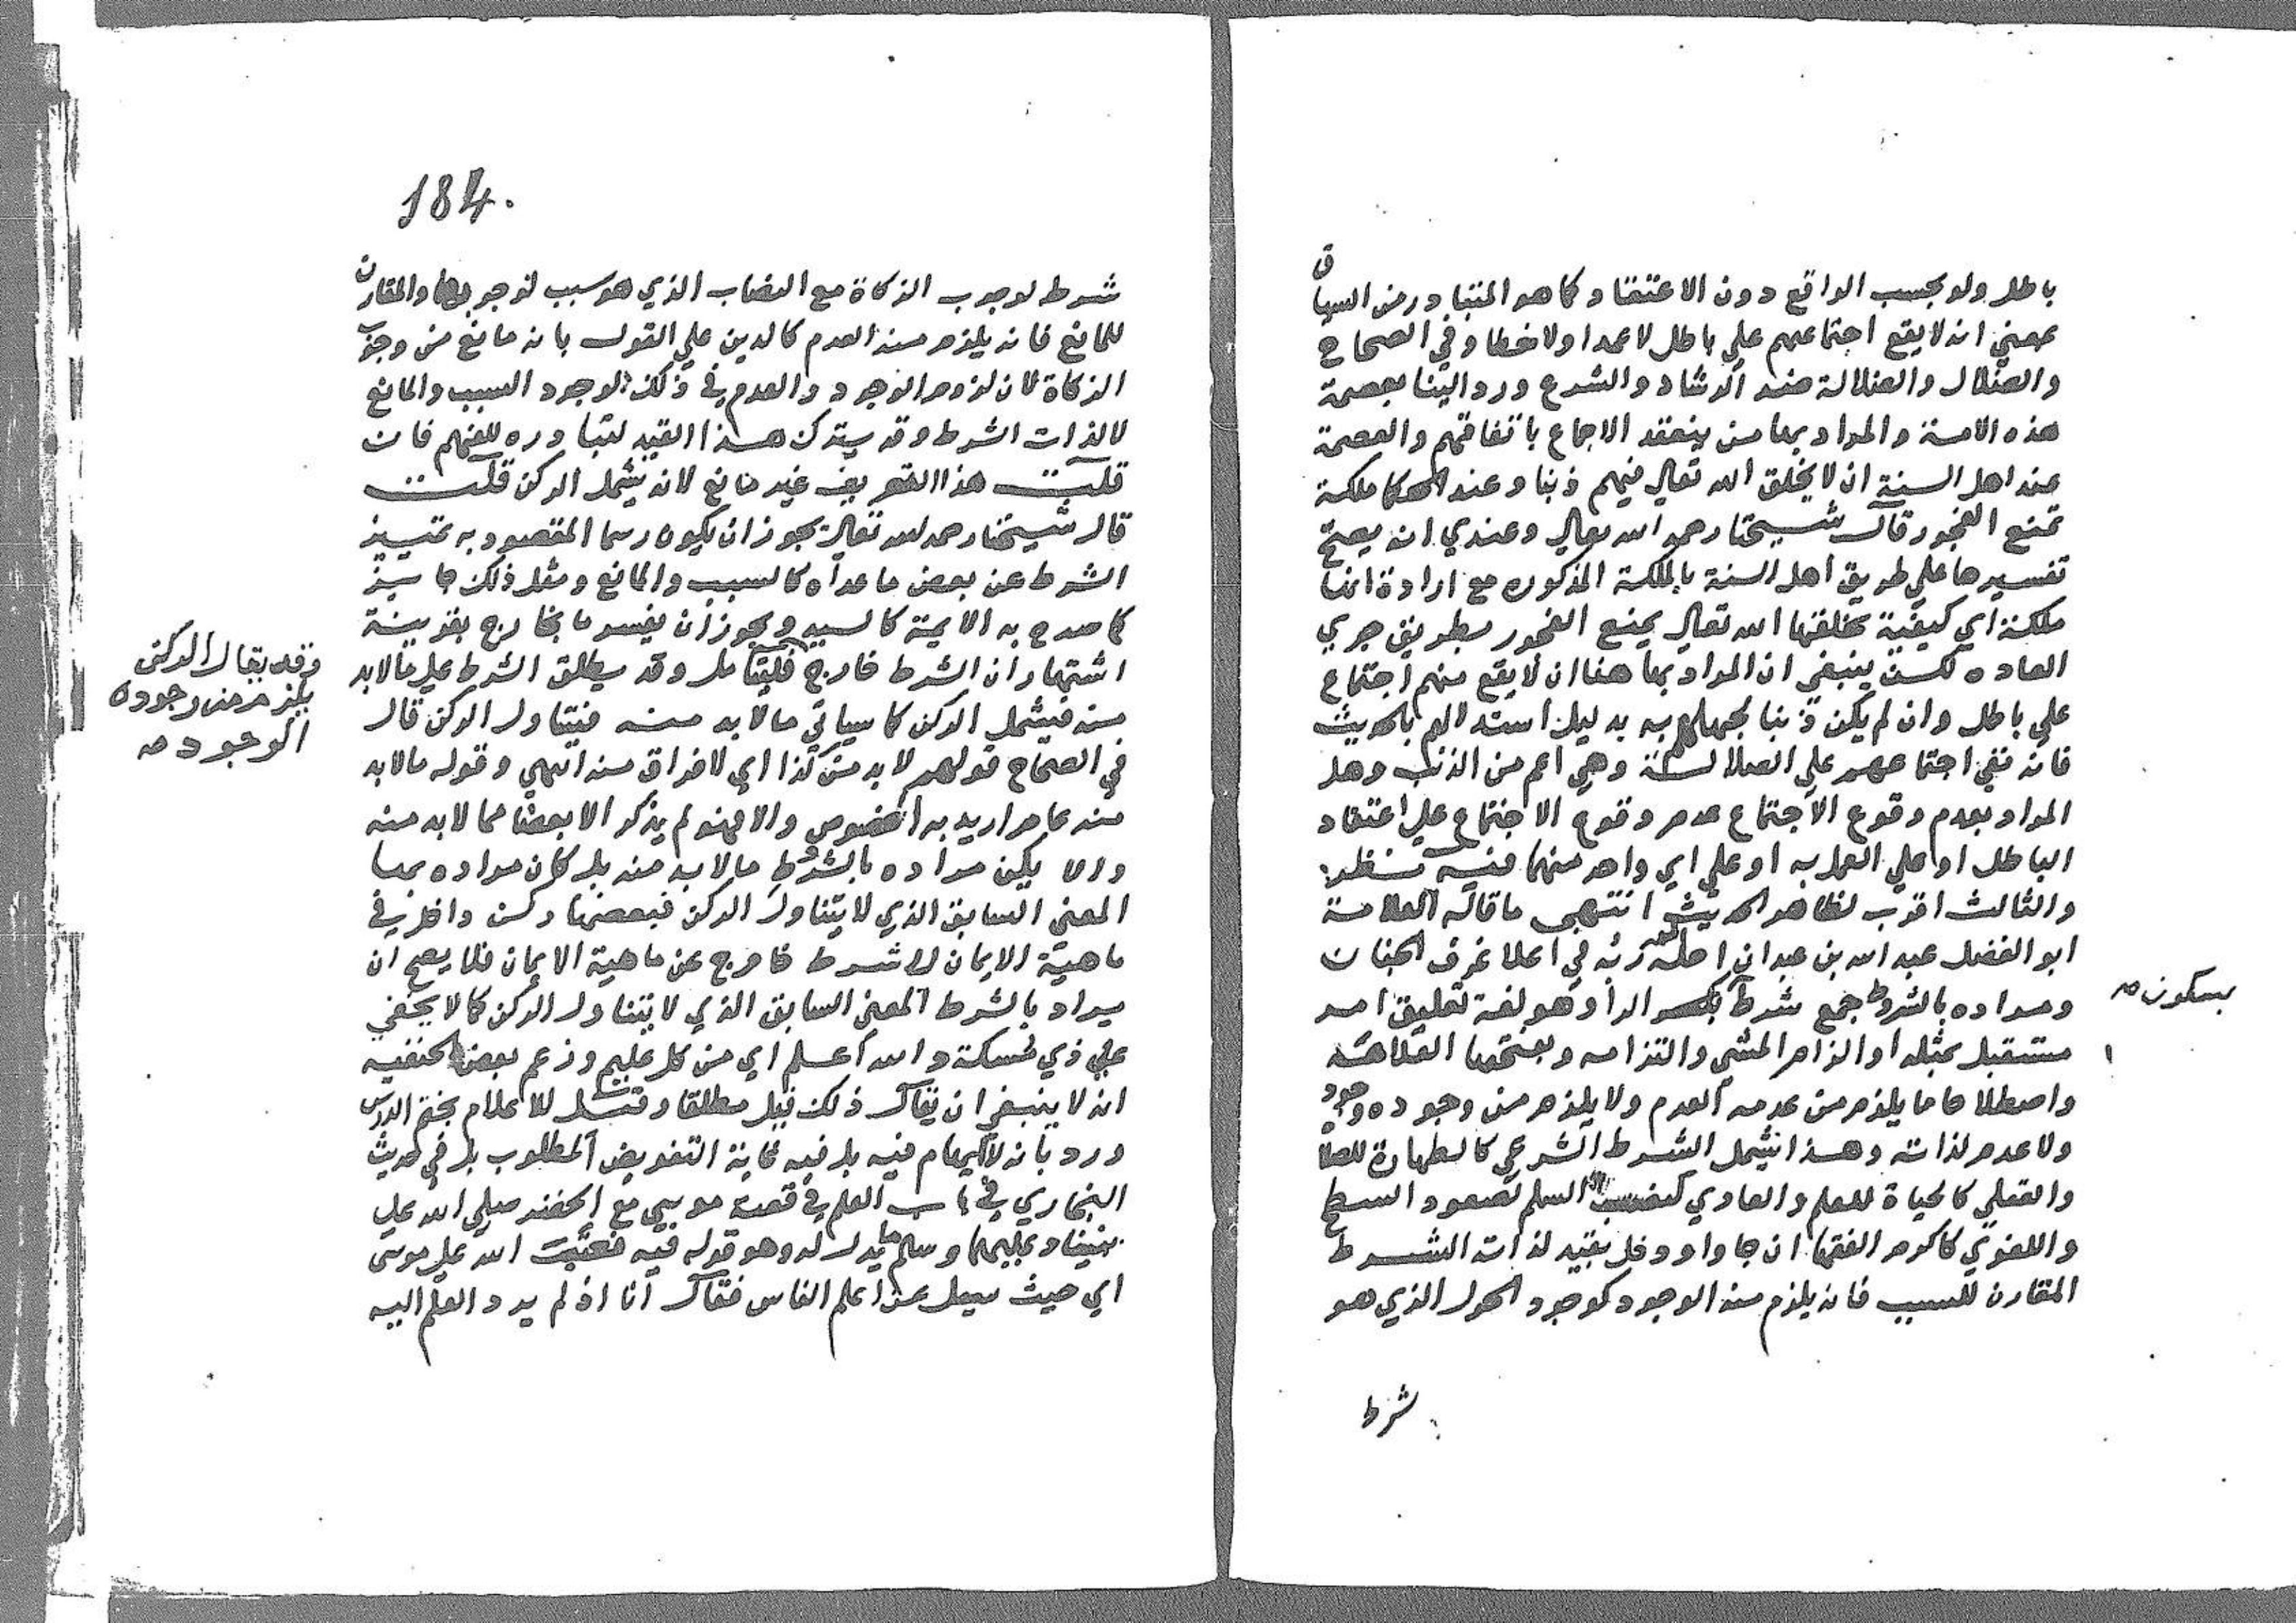 باطل ولو بحسب الواقع دون الاعتقاد كما هو المتبادر من السياق
بمعني انه لا يقع اجتماعهم علي باطل لا عمدا ولا خطا وفي الصحاح
والضلال والضلالة ضد الرشاد والشرع ورد الينا بعصمة
هذه الامة والمراد بها من ينعقد الاجماع باتفاقهم والعصمة
عند اهل السنة ان لا يخلق الله تعالي فيهم ذنبا وعند الحكما ملكة
تمنع الفجور قال شيخنا رحمه الله تعالي وعندي انه يصح
تفسيرها علي طريق اهل السنة بالملكة المذكوره مع ارادة انها
ملكة اي كيفية يخلقها الله تعالي يمنع الفجور بطريق جري
العاده لكن ينبغي ان المراد بها هنا ان لا يقع منهم اجتماع
علي باطل وان لم يكن ذنبا لجهلهم به بدليل استدلالهم بالحديث
فانه نفي اجتماعهم علي الضلالة وهي اعم من الذنب وهل
المراد بعدم وقوع الاجتماع عدم وقوع الاجتماع علي اعتقاد
الباطل او علي العمل به او علي اي واحد منهما فيه نظر
والثالث اقرب لظاهر الحديث انتهي ما قاله العلامة
ابو الفضل عبد الله بن عبدان احله الله في اعلا غرف الجنان
ومراده بالشروط جمع شرط بكسر الرا وهو لغة تعليق امر
بسكون صح
مستقبل بمثله او الزام الشي والتزامه وبفتحها العلامة
واصطلاحا ما يلزم من عدمه العدم ولا يلزم من وجوده وجود
ولا عدم لذاته وهذا يشمل الشرط الشرعي كالطهارة للصلاة
والعقلي كالحياة للعلم والعادي كنصب السلم لصعود السطح
واللغوي كاكرم الفقها ان جاوا ودخل بقيد لذاته الشرط
المقارن للسبب فانه يلزم منه الوجود كوجود الحول الذي هو
شرط
184.
شرط لوجوب الزكاة مع النصاب الذي هو سبب لوجوبها والمقارن
للمانع فانه يلزم منه العدم كالدين علي القول بانه مانع من وجوب
الزكاة لان لزوم الوجود والعدم في ذلك لوجود السبب والمانع
لا لذات الشرط وقد يترك هذا القيد لتبادره للفهم فان
قلت هذا التعريف غير مانع لانه يشمل الركن قلت
قال شيخنا رحمه الله تعالي يجوز ان يكون رسما المقصود به تمييز
الشرط عن بعض ما عداه كالسبب والمانع ومثل ذلك جايز
كما صرح به الايمة كالسيد ويجوز ان يفسر ما بخارج بقرينة
اشتهار ان الشرط خارج فليتامل وقد يطلق الشرط علي ما لابد
وقد يقال الركن
يلزم من وجوده
الوجود صح
منه فيشمل الركن كما سياتي ما لابد منه فيتناول الركن قال
في الصحاح قولهم لا بد من كذا اي لا فراق منه انتهي وقوله ما لابد
منه عام اريد به الخصوص والا فهو لم يذكر الا بعضا مما لابد منه
ولا يكون مراده بالشرط ما لابد منه بل كان مراده بها
المعني السابق الذي لا يتناول الركن فبعضها ركن داخل في
ماهية الايمان لا شرط خارج عن ماهية الايمان فلا يصح ان
يراد بالشرط المعني السابق الذي لا يتناول الركن كما لا يخفي
علي ذي مسكة والله اعلم اي من كل عليم وزعم بعض الحنفيه
انه لا ينبغي ان يقال ذلك قيل مطلقا وقيل للاعلام بختم الدرس
ورد بانه لا ايهام فيه بل فيه غاية التفويض المطلوب بل في حديث
البخاري في باب العلم في قصة موسي مع الخضر صلي الله علي
نبينا وعليهما وسلم ما يدل له وهو قوله فيه فعتب الله علي موسي
اي حيث سيل عن اعلم الناس فقال انا اذ لم يرد العلم اليه